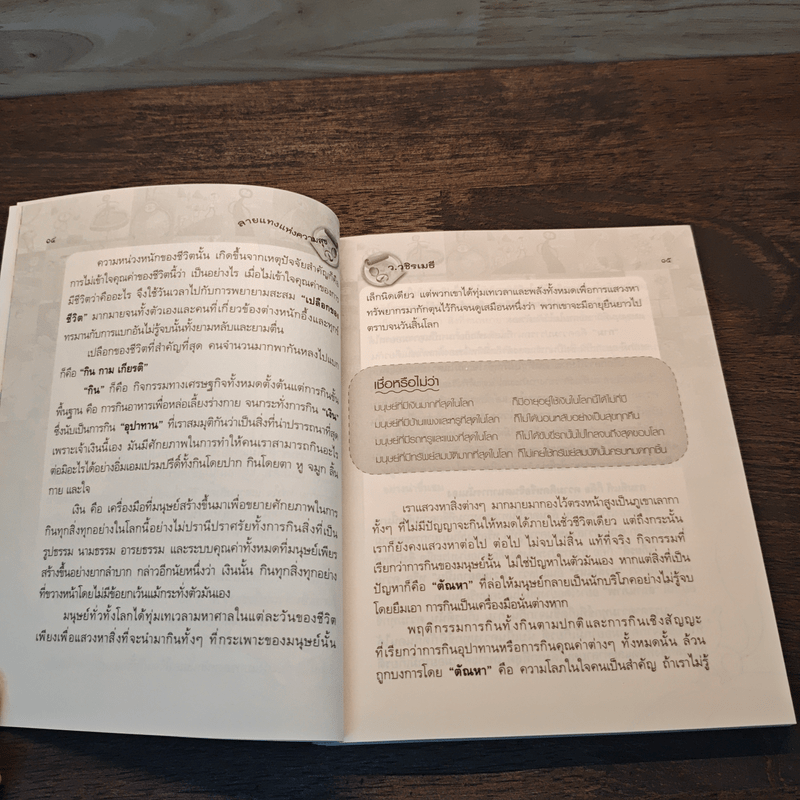 ๑๔
ลายแทงแห่งความสุข
ความหน่วงหนักของชีวิตนั้น เกิดขึ้นจากเหตุปัจจัยสำคัญที่
การไม่เข้าใจคุณค่าของชีวิตนี้ว่า เป็นอย่างไร เมื่อไม่เข้าใจคุณค่าของการ
มีชีวิตว่าคืออะไร จึงใช้วันเวลาไปกับการพยายามสะสม “เปลือกของ
ชีวิต” มากมายจนทั้งตัวเองและคนที่เกี่ยวข้องต่างหนักอึ้งและทุกข์
ทรมานกับการแบกอันไม่รู้จบนั้นทั้งยามหลับและยามตื่น
เปลือกของชีวิตที่สำคัญที่สุด คนจำนวนมากพากันหลงไปแบก
ก็คือ “กิน กาม เกียรติ”
“กิน” ก็คือ กิจกรรมทางเศรษฐกิจทั้งหมดตั้งต้นแต่การกินขั้น
พื้นฐาน คือ การกินอาหารเพื่อหล่อเลี้ยงร่างกาย จนกระทั่งการกิน “เงิน”
ซึ่งนับเป็นการกิน “อุปาทาน” ที่เราสมมุติกันว่าเป็นสิ่งที่น่าปรารถนาที่สุด
เพราะเจ้าเงินนี้เอง มันมีศักยภาพในการทำให้คนเราสามารถกินอะไร
ต่อมิอะไรได้อย่างอิ่มเอมเปรมปรีดิ์ทั้งกินโดยปาก กินโดยตา หู จมูก ลิ้น
กาย และใจ
เงิน คือ เครื่องมือที่มนุษย์สร้างขึ้นมาเพื่อขยายศักยภาพในการ
กินทุกสิ่งทุกอย่างในโลกนี้อย่างไม่ปรานีปราศรัยทั้งการกินสิ่งที่เป็น
รูปธรรม นามธรรม อารยธรรม และระบบคุณค่าทั้งหมดที่มนุษย์เพียร
สร้างขึ้นอย่างยากลำบาก กล่าวอีกนัยหนึ่งว่า เงินนั้น กินทุกสิ่งทุกอย่าง
ที่ขวางหน้าโดยไม่มีข้อยกเว้นแม้กระทั่งตัวมันเอง
มนุษย์ทั่วทั้งโลกได้ทุ่มเทเวลามหาศาลในแต่ละวันของชีวิต
เพียงเพื่อแสวงหาสิ่งที่จะนำมากินทั้งๆ ที่กระเพาะของมนุษย์นั้น
ว.วชิรเมธี
๑๕
เล็กนิดเดียว แต่พวกเขาได้ทุ่มเทเวลาและพลังทั้งหมดเพื่อการแสวงหา
ทรัพยากรมากักตุนไว้กินจนดูเสมือนหนึ่งว่า พวกเขาจะมีอายุยืนยาวไป
ตราบจนวันสิ้นโลก
เชื่อหรือไม่ว่า
มนุษย์ที่มีเงินมากที่สุดในโลก ก็มีอายุอยู่ใช้เงินในโลกนี้ได้ไม่กี่ปี
มนุษย์ที่มีบ้านแพงและหรูที่สุดในโลก ก็ไม่ได้นอนหลับอย่างเป็นสุขทุกคืน
มนุษย์ที่มีรถหรูและแพงที่สุดในโลก ก็ไม่ได้ขับขี่รถนั้นไปไกลจนถึงสุดขอบโลก
มนุษย์ที่มีทรัพย์สมบัติมากที่สุดในโลก ก็ไม่เคยใช้ทรัพย์สมบัตินั้นครบหมดทุกชิ้น
เราแสวงหาสิ่งต่างๆ มากมายมากองไว้ตรงหน้าสูงเป็นภูเขาเลากา
ทั้งๆ ที่ไม่มีปัญญาจะกินให้หมดได้ภายในชั่วชีวิตเดียว แต่ถึงกระนั้น
เราก็ยังคงแสวงหาต่อไป ต่อไป ไม่จบไม่สิ้น แท้ที่จริง กิจกรรมที่
เรียกว่าการกินของมนุษย์นั้น ไม่ใช่ปัญหาในตัวมันเอง หากแต่สิ่งที่เป็น
ปัญหาก็คือ “ตัณหา” ที่ล่อให้มนุษย์กลายเป็นนักบริโภคอย่างไม่รู้จบ
โดยยืมเอา การกินเป็นเครื่องมือนั่นต่างหาก
พฤติกรรมการกินทั้งกินตามปกติและการกินเชิงสัญญะ
ที่เรียกว่าการกินอุปาทานหรือการกินคุณค่าต่างๆ ทั้งหมดนั้น ล้วน
ถูกบงการโดย “ตัณหา” คือ ความโลภในใจคนเป็นสำคัญ ถ้าเราไม่รู้